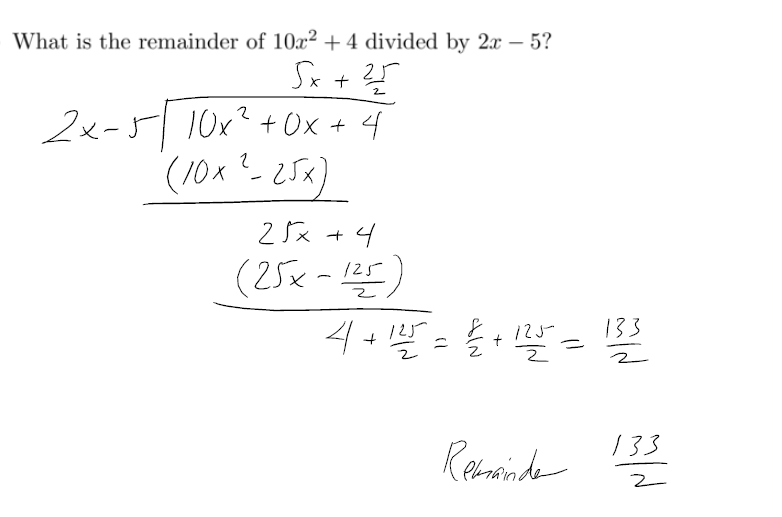 What is the remainder of 10x² + 4 divided by 2x − 5?
5x + 25/2
2x-5 10x² + 0x + 4
(10x² - 25x)
25x + 4
(25x - 125/2)
4 + 125/2 = 8/2 + 125/2 = 133/2
Remainder 133/2